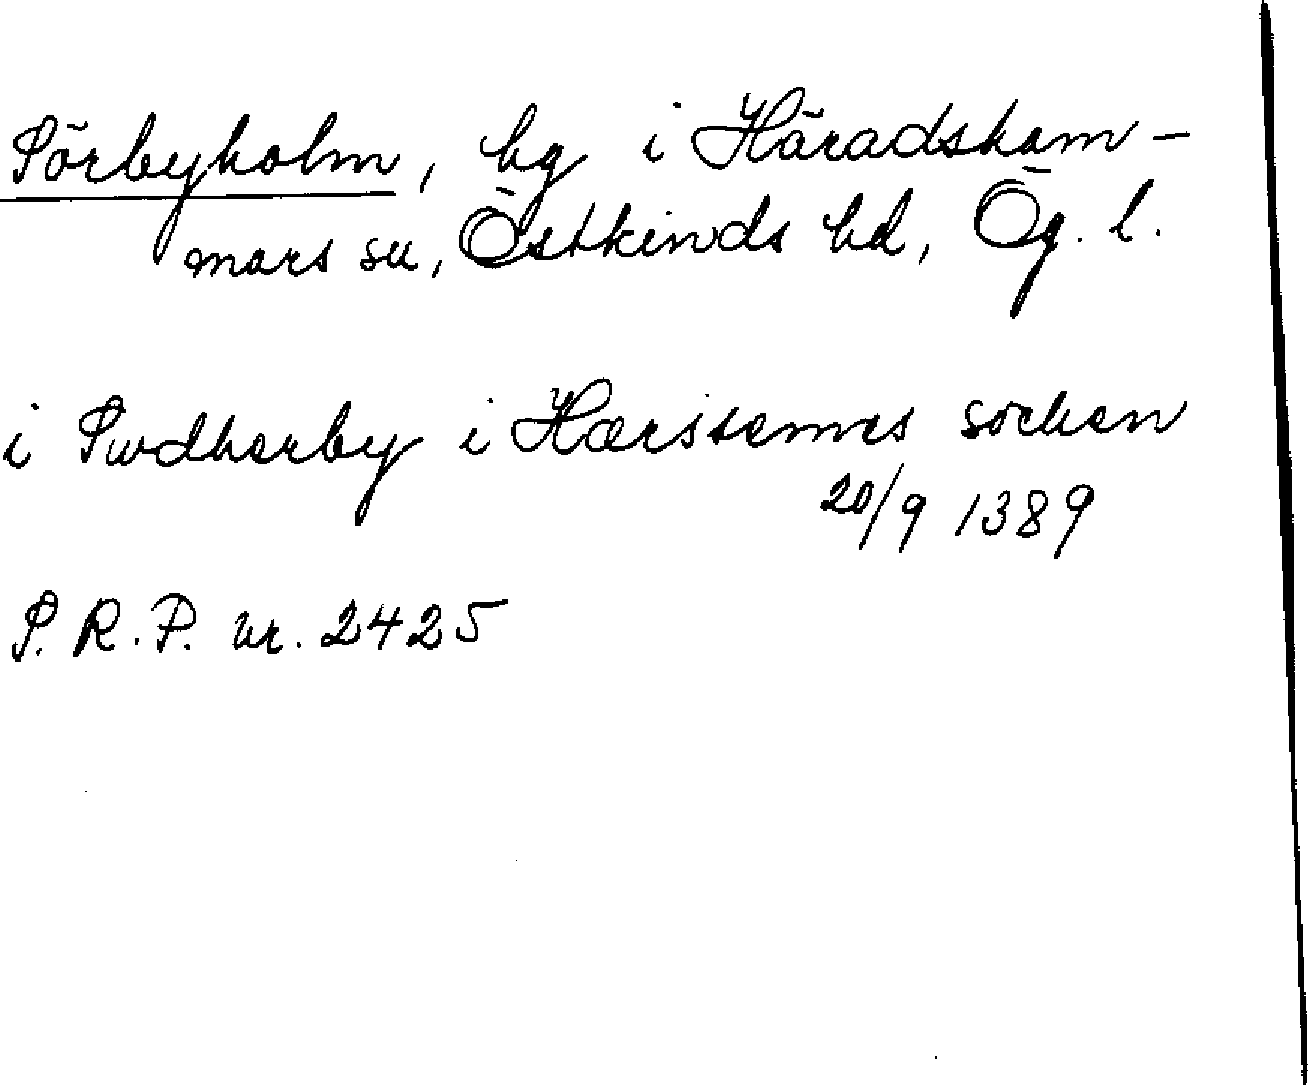 Sörbyholm, hg i Häradsham-
mars sn, Östkinds hd, Ög. l.
i Swdherby i Hærstemes socken
20/9 1389
S. R. P. nr. 2425